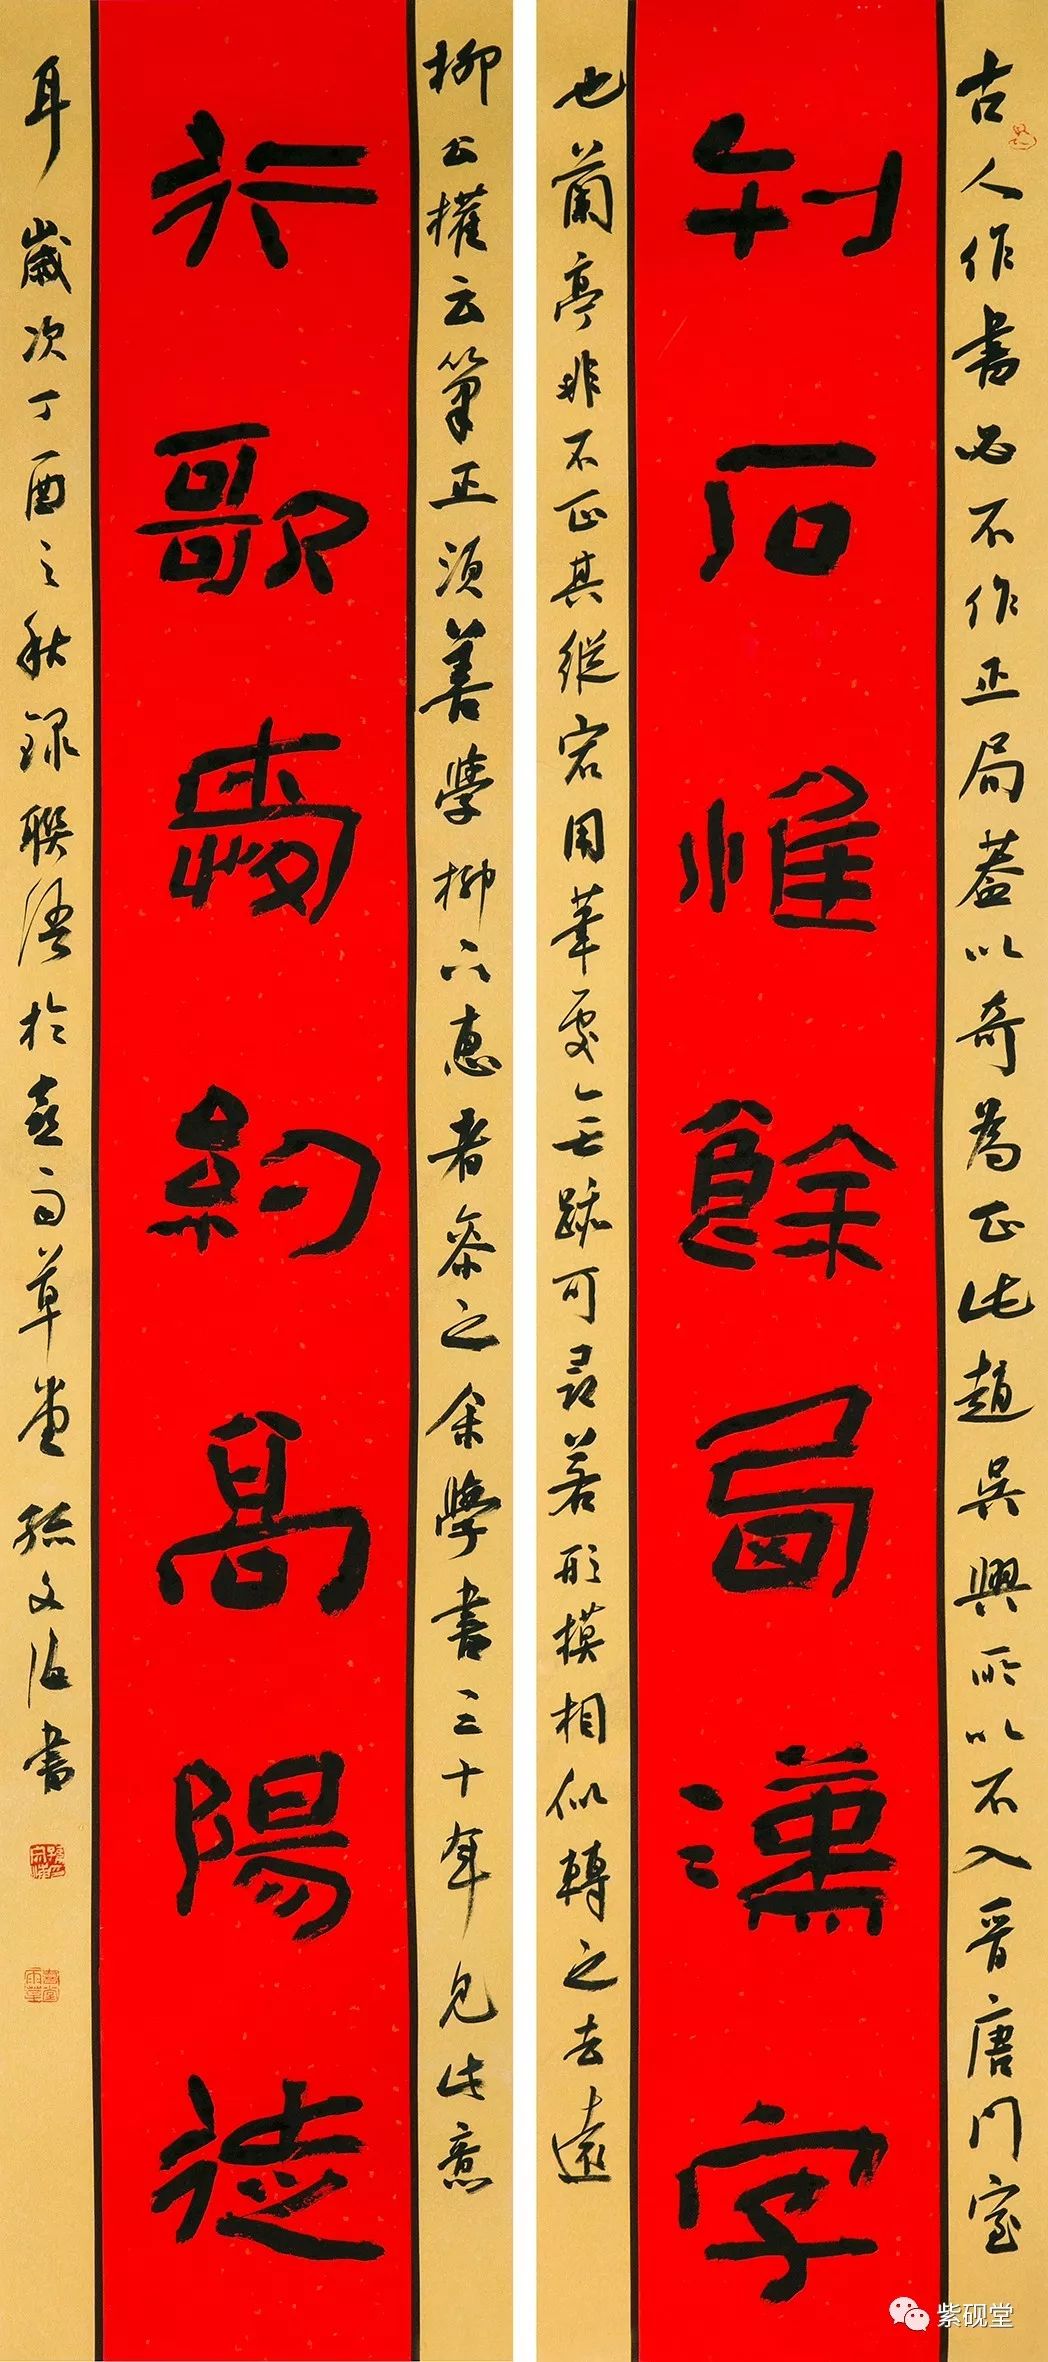 古人作書必不作正局蓋以奇為正此趙吳興所以不入晉唐門室
刊石惟餘漢字
也蘭亭非不正其縱宕用筆處無跡可尋若形模相似轉之去遠
柳公權云筆正須善學柳下惠者參之余學書三十年見此意
行歌約高陽徒
耳 歲次丁酉之秋錄聯語於喜雨草堂 孫文海書
紫砚堂